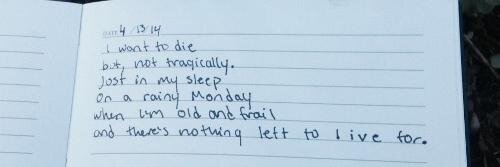 DATE 4/13/14
I want to die
but, not tragically.
Just in my sleep
On a rainy Monday
when I'm old and frail
and there's nothing left to live for.